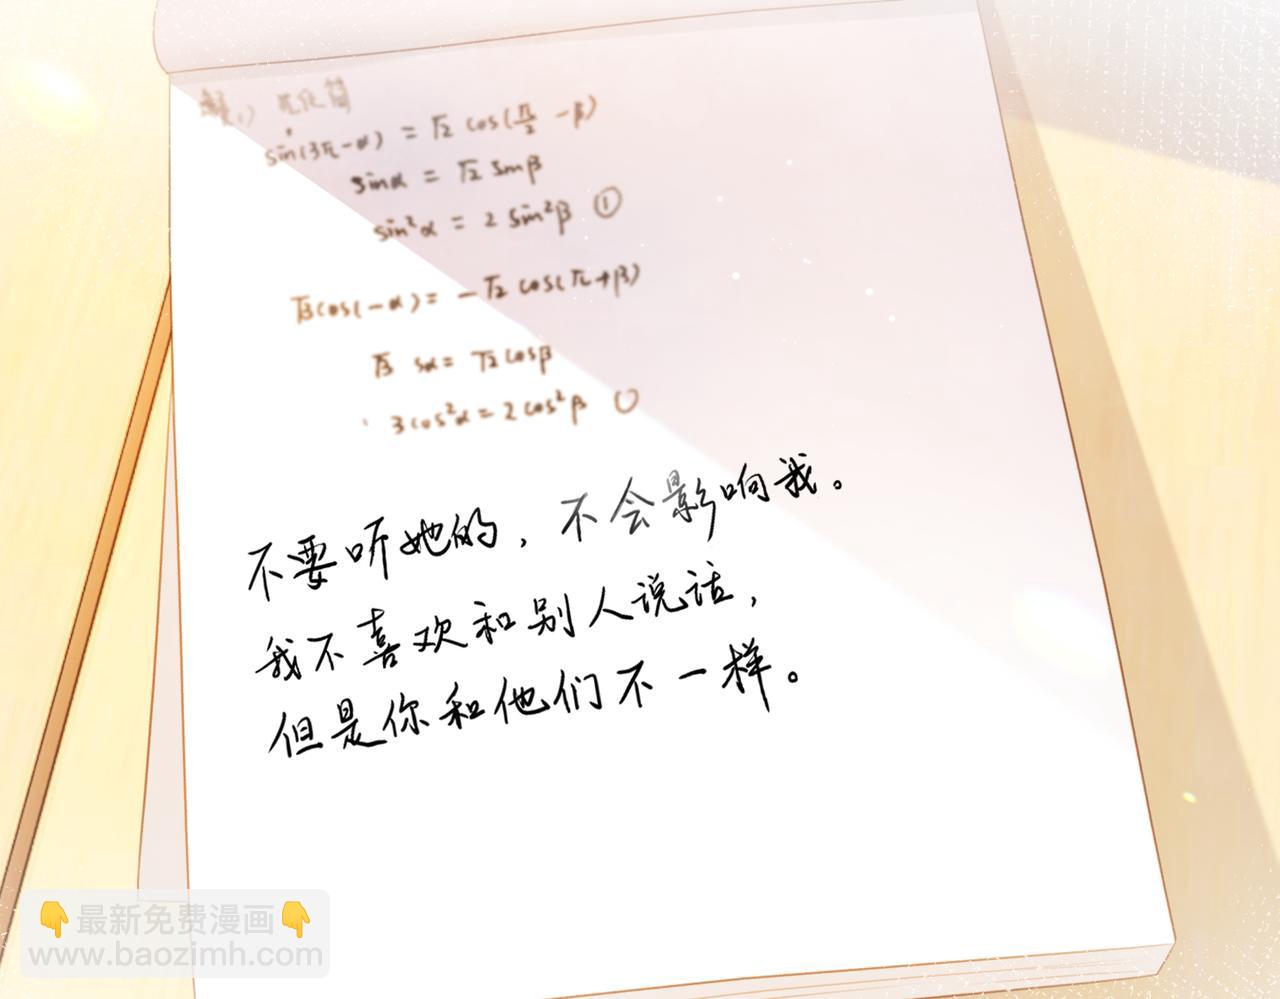 解1) 先化简
sin(3π-α) = √2 cos(π/2 -β)
sinα = √2 sinβ
sin²α = 2 sin²β ①
√3cos(-α) = -√2 cos(π+β)
√3 sα = √2 cosβ
3cos²α = 2cos²β
不要听她的，不会影响我。
我不喜欢和别人说话，
但是你和他们不一样。
👇最新免费漫画👇
www.baozimh.com